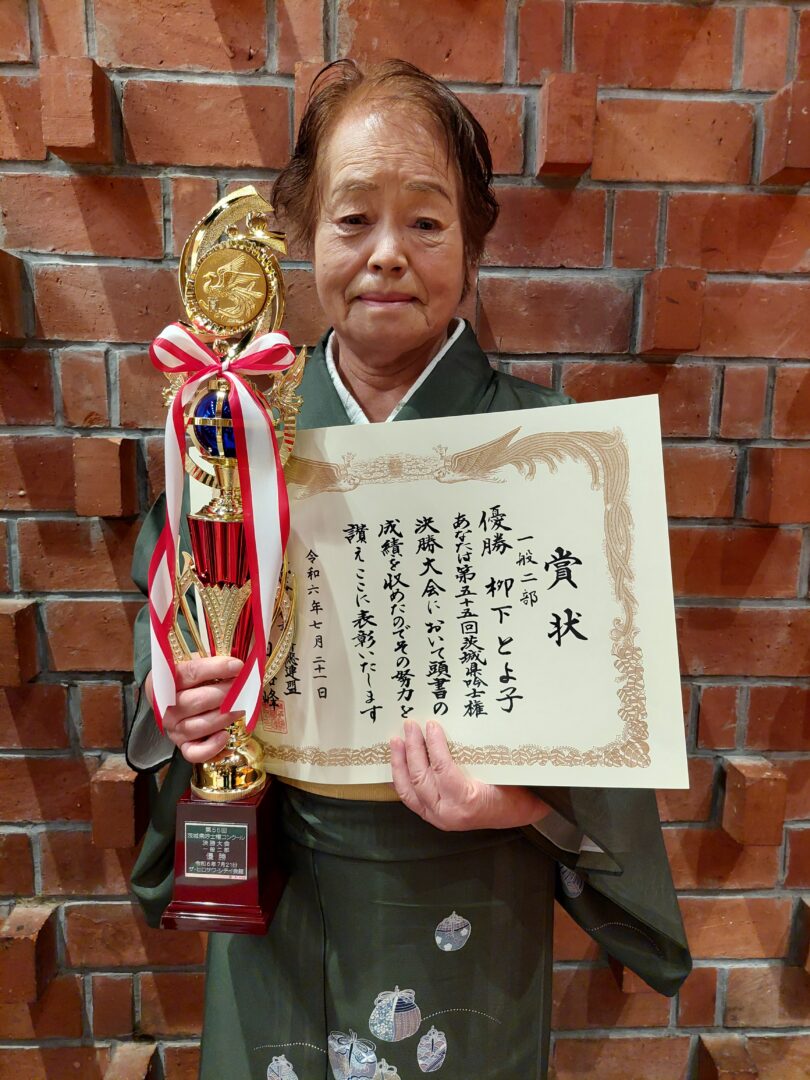 賞状
一般二部
優勝 柳下 とよ子
あなたは第五十五回茨城県吟士権
決勝大会において頭書の
成績を収めたのでその努力を
讃えここに表彰いたします
令和六年七月二十一日
連盟
峰
第55回
茨城県吟士権コンクール
決勝大会
一般二部
優勝
令和6年7月21日
ザ・ヒロサワ・シティ会館